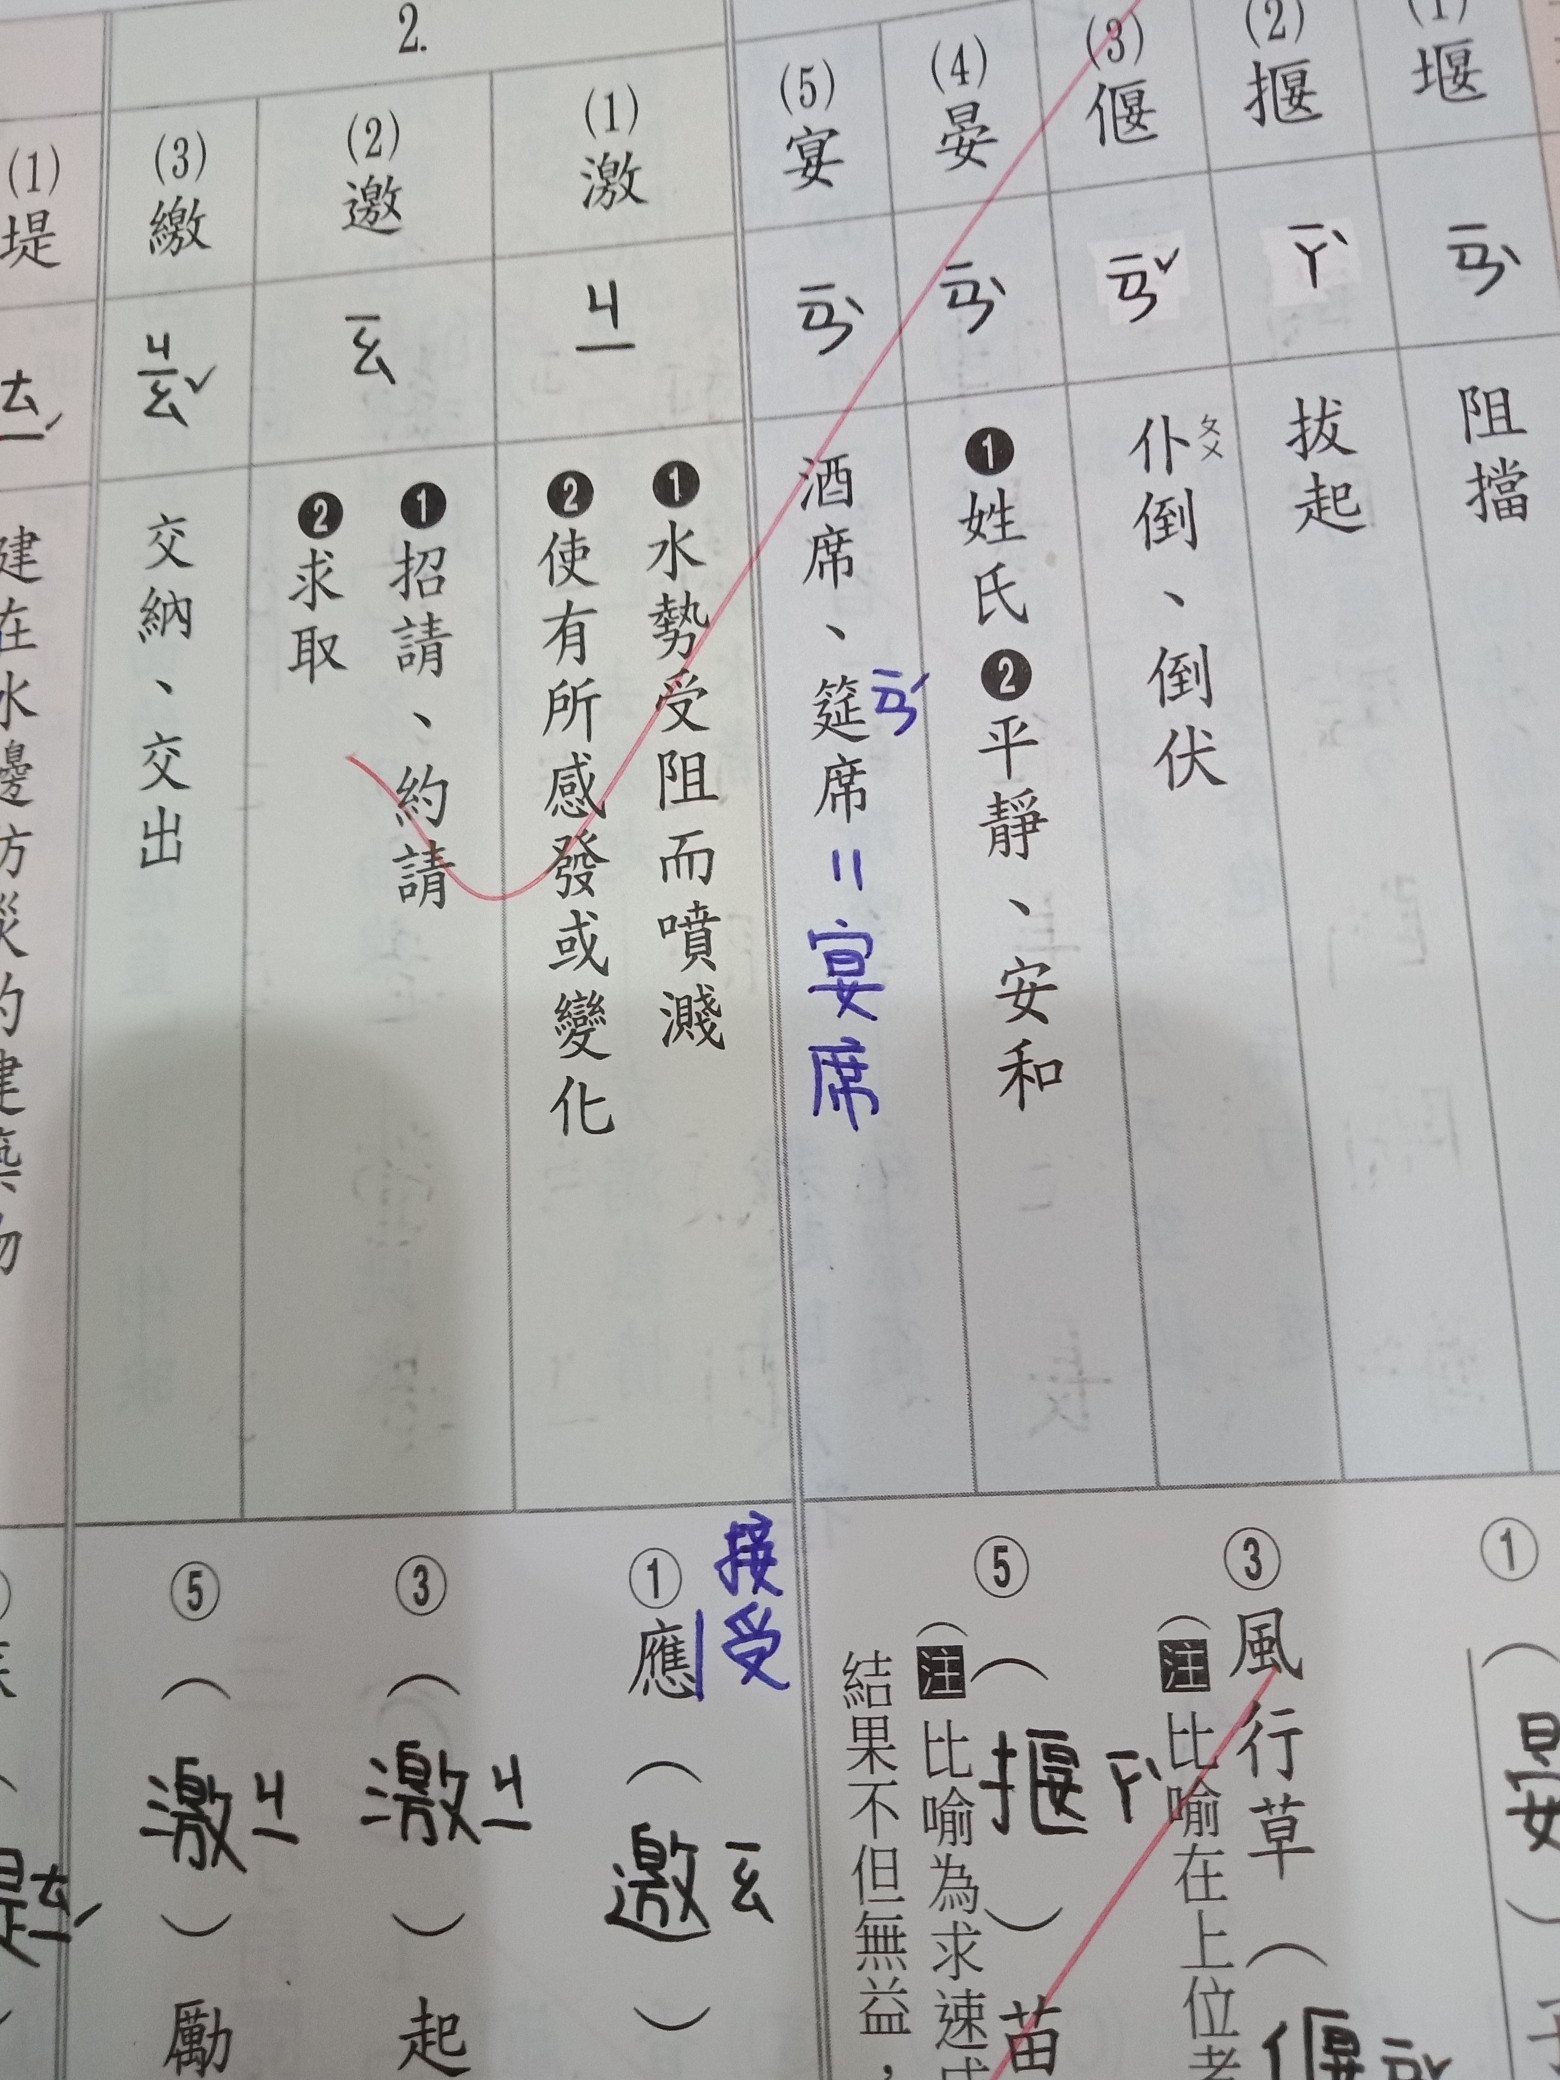 (1)堰
ㄧㄢˋ
阻擋
(2)揠
ㄧㄚˋ
拔起
(3)偃
ㄧㄢˇ
仆ㄆㄨ倒、倒伏
(4)晏
ㄧㄢˋ
❶姓氏❷平靜、安和
(5)宴
ㄧㄢˋ
酒席、筵ㄧㄢˊ席=宴席
2.
(1)激
ㄐㄧ
❶水勢受阻而噴濺
❷使有所感發或變化
(2)邀
ㄧㄠ
❶招請、約請
❷求取
(3)繳
ㄐㄧㄠˇ
交納、交出
(1)堤
ㄊㄧˊ
建在水邊防災的建築物
①
(晏)
③風行草(偃ㄧㄢˇ
(注比喻在上位者
⑤(揠ㄧㄚˋ)苗
(注比喻為求速成
結果不但無益,
接受
①應(邀ㄧㄠ)
③(激ㄐㄧ)起
⑤(激ㄐㄧ)勵
堤ㄊㄧˊ)